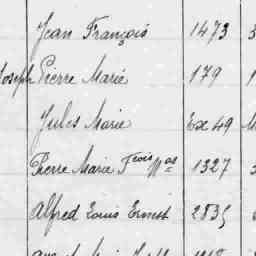 Jean François 1473
Joseph Pierre Marie 179
Jules Marie Ex 49
Pierre Marie Fcois Nas 1327
Alfred Louis Ernest 2835